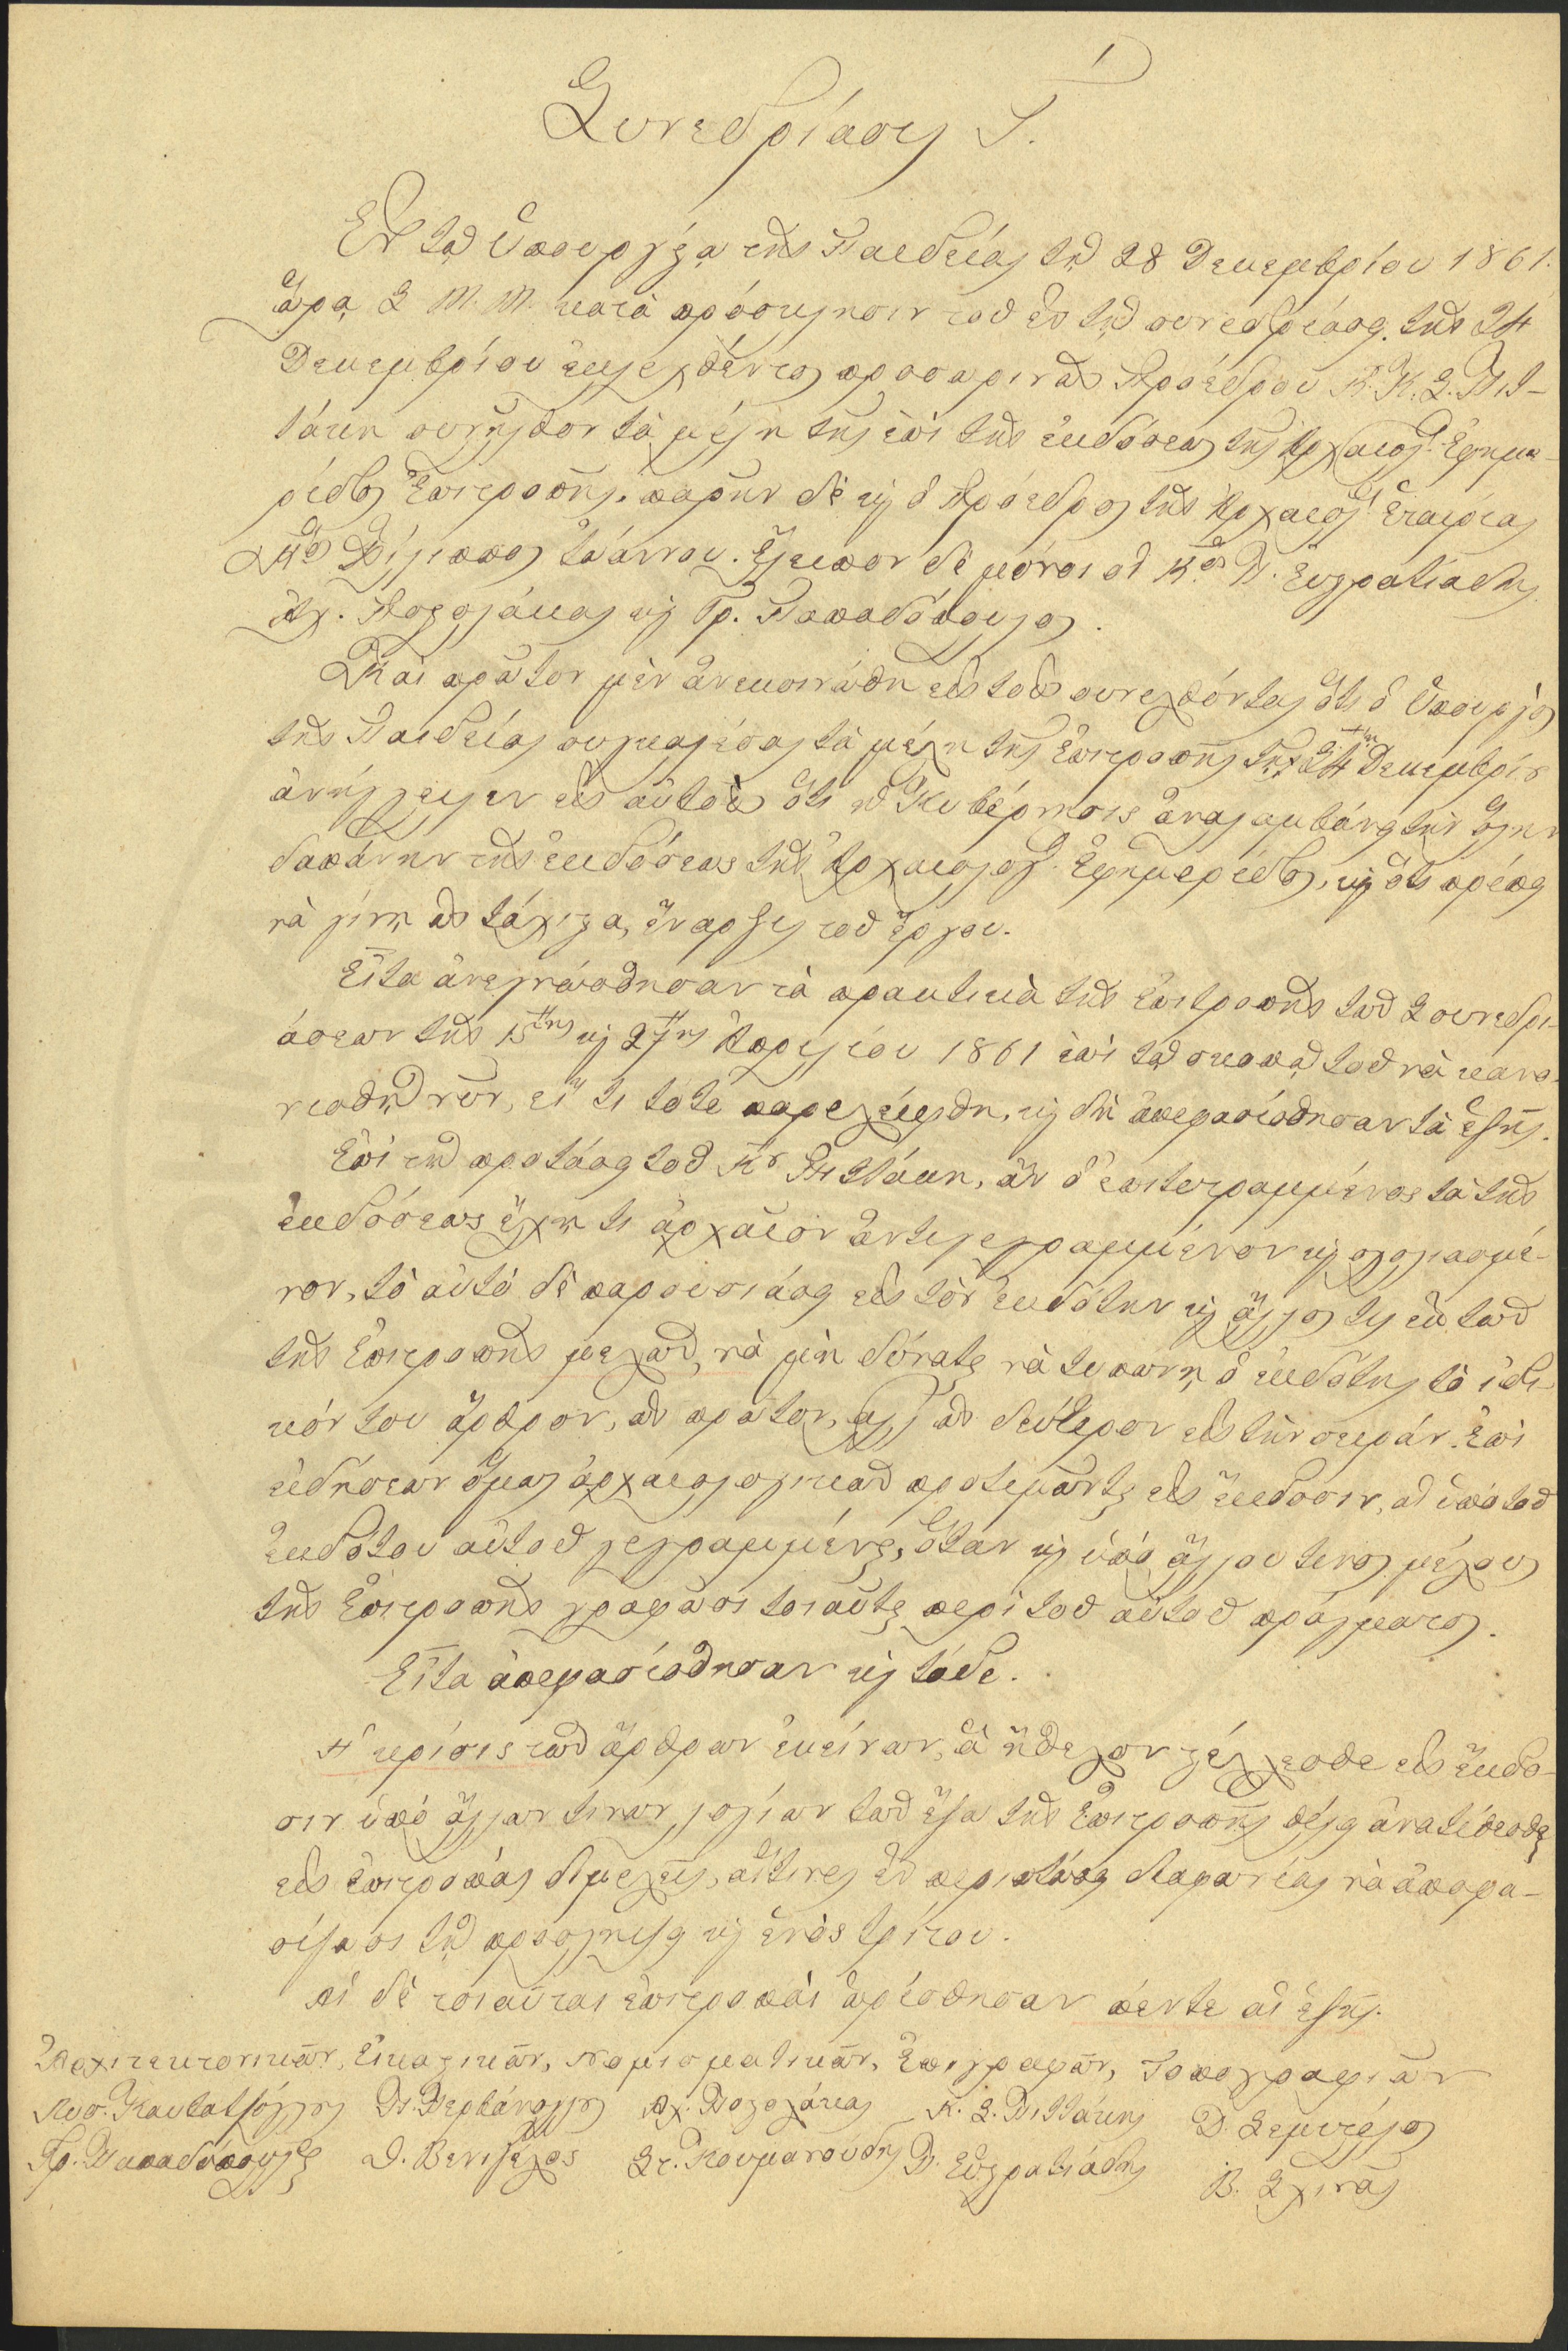 Συνεδρίασις Γ΄.
Ἐν τῷ Ὑπουργείῳ τῆς Παιδείας τῇ 28 Δεκεμβρίου 1861.
ὥρᾳ 2 Μ. Μ. κατὰ πρόσκλησιν τοῦ ἐν τῇ συνεδριάσει τῆς 24
Δεκεμβρίου ἐκλεχθέντος προσωρινῶς Προέδρου Κ. Κ. Δ. Πιτ-
τάκη συνῆλθον τὰ μέλη τῆς ἐπὶ τῆς ἐκδόσεως τῆς Ἀρχαιολ. Ἐφημε-
ρίδος Ἐπιτροπῆς. παρῆν δὲ καὶ ὁ Πρόεδρος τῆς Ἀρχαιολ. Ἑταιρίας
Κος Φίλιππος Ἰωάννου. Ἔλειπον δὲ μόνοι οἱ Κοι Π. Εὐστρατιάδης
Ἀχ. Ποστολάκας καὶ Γρ. Παπαδόπουλος.
Καὶ πρῶτον μὲν ἀνεκοινώθη εἰς τοὺς συνελθόντας ὅτι ὁ Ὑπουργὸς
τῆς Παιδείας συγκαλέσας τὰ μέλη τῆς Ἐπιτροπῆς τὴν 24την Δεκεμβρίου
ἀνήγγειλεν εἰς αὐτοὺς ὅτι ἡ Κυβέρνησις ἀναλαμβάνει τὴν ὅλην
δαπάνην τῆς ἐκδόσεως τῆς Ἀρχαιολογ. Ἐφημερίδος, καὶ ὅτι πρέπει
νὰ γίνῃ ὡς τάχιστα, ἔναρξις τοῦ ἔργου.
Εἶτα ἀνεγνώσθησαν τὰ πρακτικὰ τῆς Ἐπιτροπῆς τῶν 2 συνεδρι-
άσεων τῆς 15της καὶ 27ης Ἀπριλίου 1861 ἐπὶ τῷ σκοπῷ τοῦ νὰ κανο-
νισθῇ νῦν, εἴ τι τότε παρελείφθη, καὶ δὴ ἀπεφασίσθησαν τὰ ἑξῆς.
Ἐπὶ τῇ προτάσει τοῦ Κου Πιττάκη, ἂν ὁ ἐπιτετραμμένος τὰ τῆς
ἐκδόσεως ἔχῃ τι ἀρχαῖον ἀντιγεγραμμένον καὶ σχολιασμέ-
νον, τὸ αὐτὸ δὲ παρουσιάσῃ εἰς τὸν ἐκδότην καὶ ἄλλος τις ἐκ τῶν
τῆς Ἐπιτροπῆς μελῶν, νὰ μὴ δύναται νὰ τυπώνῃ ὁ ἐκδότης τὸ ἰδι-
κόν του ἄρθρον, ὡς πρῶτον, ἀλλ' ὡς δεύτερον εἰς τὴν σειράν. Ἐπὶ
εἰδήσεων ὅμως ἀρχαιολογικῶν προτιμῶνται εἰς ἔκδοσιν, αἱ ὑπὸ τοῦ
ἐκδότου αὐτοῦ γεγραμμέναι, ὅταν καὶ ὑπὸ ἄλλου τινος μέλους
τῆς Ἐπιτροπῆς γραφῶσι τοιαῦται περὶ τοῦ αὐτοῦ πράγματος.
Εἶτα ἀπεφασίσθησαν καὶ τάδε.
Ἡ κρίσις τῶν ἄρθρων ἐκείνων, ἃ ἤθελον στέλλεσθαι εἰς ἔκδο-
σιν ὑπὸ ἄλλων τινων λογίων τῶν ἔξω τῆς Ἐπιτροπῆς θέλει ἀνατίθεσθαι
εἰς ἐπιτροπὰς διμελεῖς, αἵτινες ἐν περιπτώσει διαφωνίας νὰ ἀποφα-
σίζωσι τῇ προσλήψει καὶ ἑνὸς τρίτου.
Αἱ δὲ τοιαῦται ἐπιτροπαὶ ὡρίσθησαν πέντε αἱ ἑξῆς.
Ἀρχιτεκτονικῶν, Εἰκαστικῶν, Νομισματικῶν, Ἐπιγραφῶν, Τοπογραφιῶν
Λυσ. Καυταντζόγλης Π. Περβάνογλης Ἀχ. Ποστολάκας Κ. Δ. Πιττάκης Δ. Σεμιτέλος
Γρ. Παπαδόπουλος Δ. Βενιζέλος Στ. Κουμανούδης Π. Εὐστρατιάδης Β. Σχινᾶς